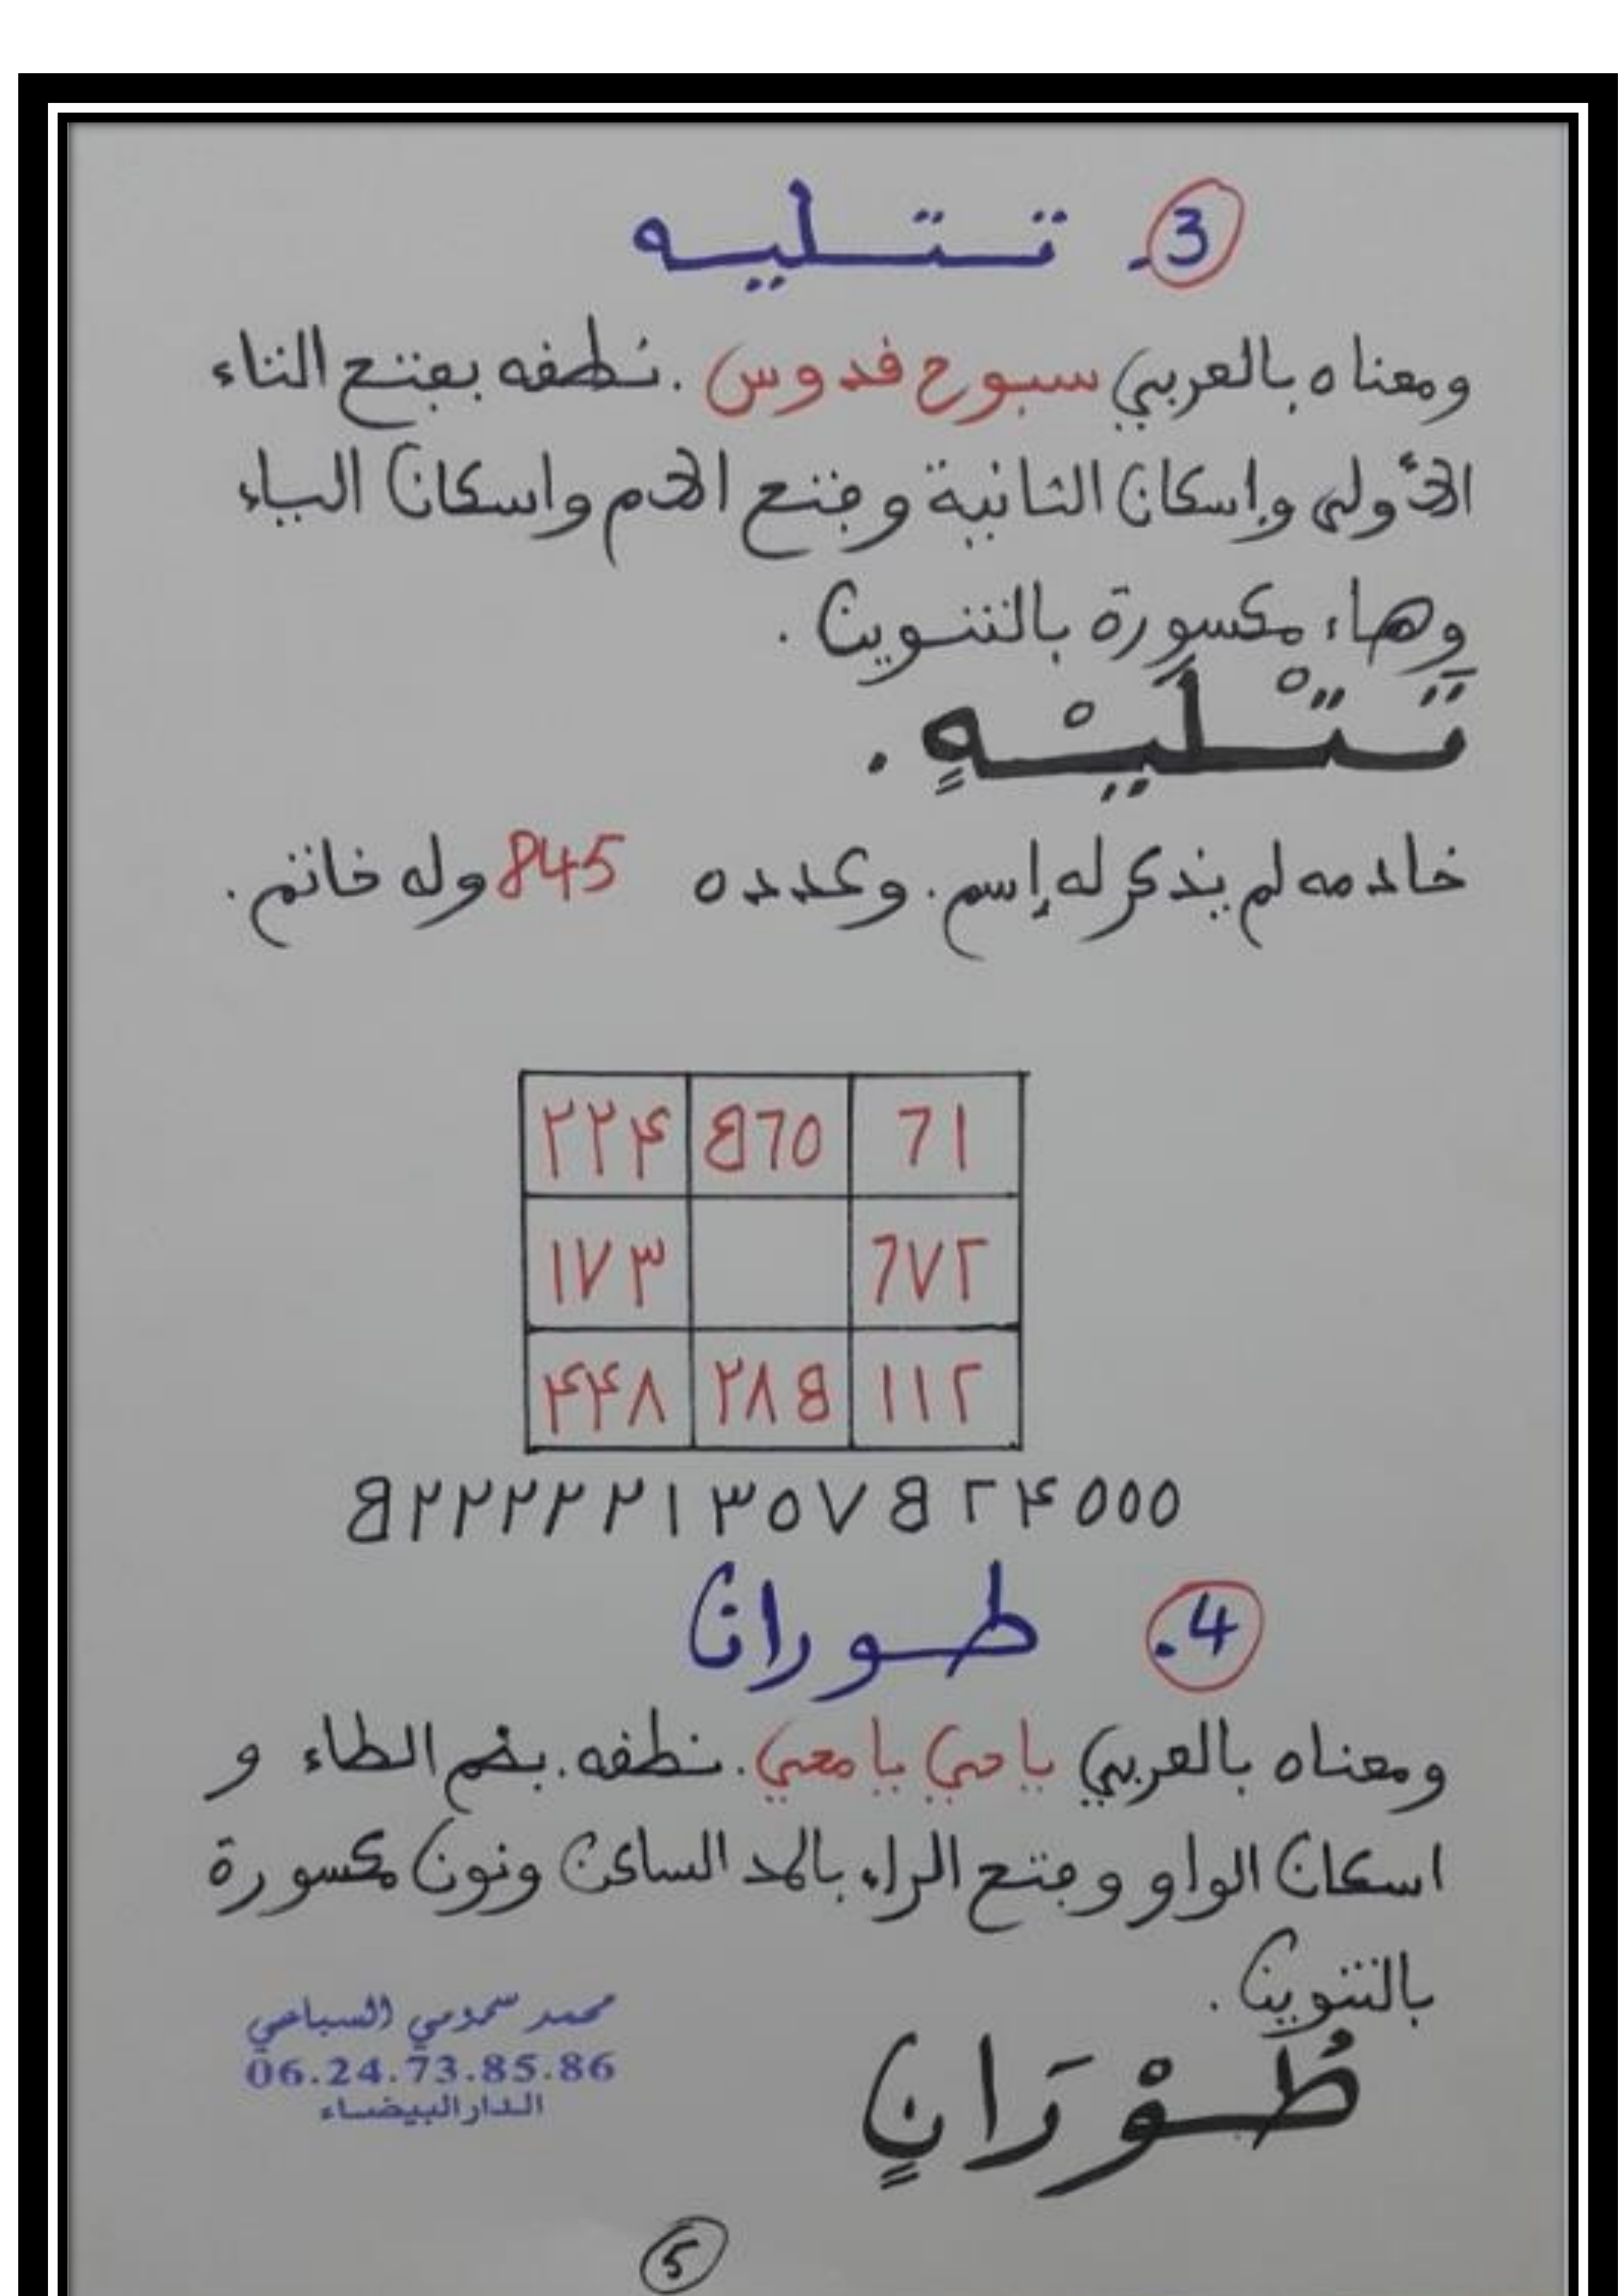 3. تتليه
ومعناه بالعربي سبوح قدوس. نطقه بفتح التاء
الأولى وإسكان الثانية وفتح اللام واسكان الياء
وهاء مكسورة بالتنوين.
تَتْلَيْهٍ.
خادمه لم يذكر له إسم. وعدده 845 وله خاتم.
71 B70 ۲۲۴
7۷۲ ۱۷۳
۱۱۲ ۲۸B ۴۴۸
B۲۲۲۲۲۱۳٥۷B۲۴٥٥٥
4. طوران
ومعناه بالعربي ياحي يا محي. نطقه. بضم الطاء و
اسكان الواو وفتح الراء بالمد الساكن ونون مكسورة
بالتنوين.
طُوْرَانٍ
06.24.73.85.86
الدارالبيضاء
5